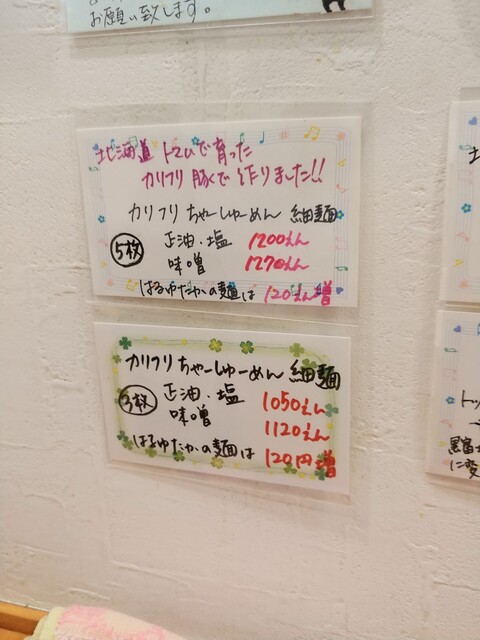 お願い致します。
北海道 トマムで育った
カリフリ 豚で作りました!!
カリフリ ちゃーしゅーめん 細麺
5枚
正油・塩 1200えん
味噌 1270えん
はるゆたかの麺は 120えん増
カリフリ ちゃーしゅーめん 細麺
3枚
正油・塩 1050えん
味噌 1120えん
はるゆたかの麺は 120円増
トッ
に変